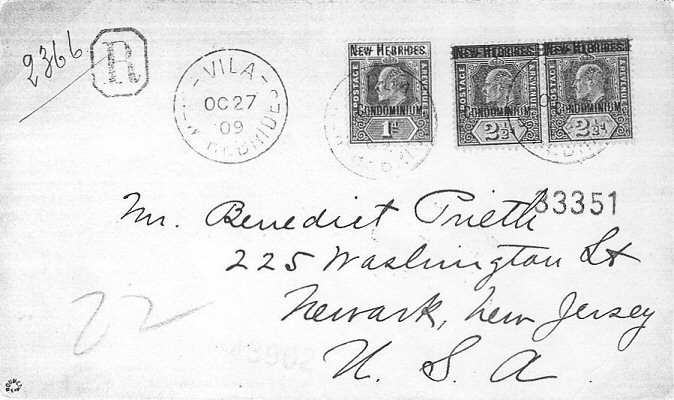 2366
R
VILA
OC 27
09
NEW HEBRIDES
NEW HEBRIDES.
POSTAGE
CONDOMINIUM
1d
NEW HEBRIDES.
POSTAGE
CONDOMINIUM
2½d
NEW HEBRIDES.
POSTAGE
CONDOMINIUM
2½d
33351
Mr. Benedict Prieth
225 Washington St
Newark, New Jersey
U. S. A.
22